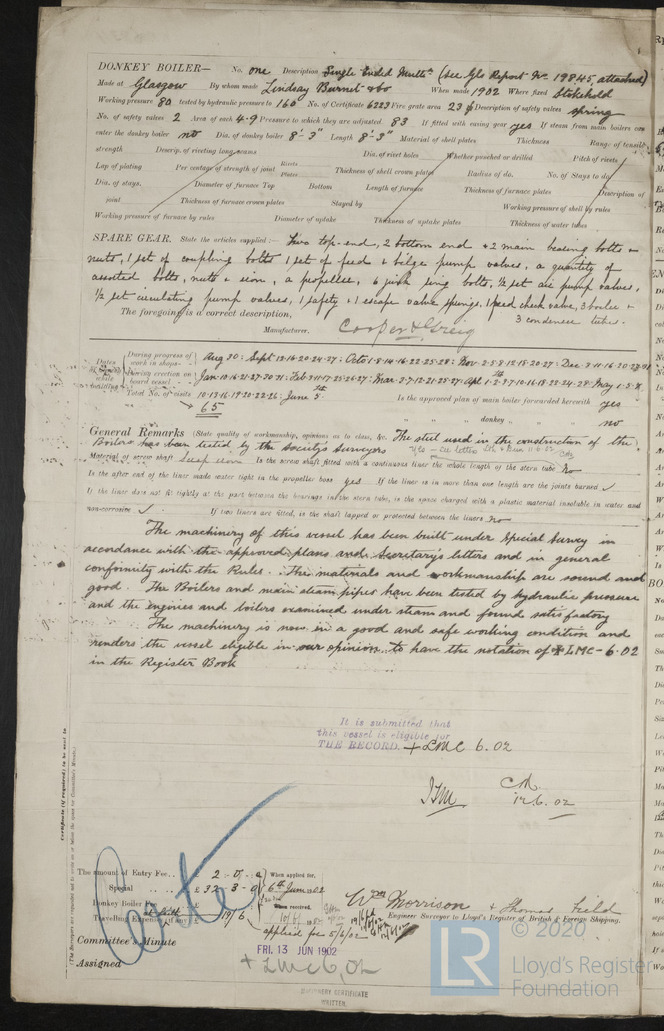 DONKEY BOILER— No. one Description Single Ended Multr (See Gls Report No. 19845, attached)
Made at Glasgow By whom made Lindsay Burnet & Co When made 1902 Where fixed Stokehold
Working pressure 80 tested by hydraulic pressure to 160 No. of Certificate 6223 Fire grate area 23 Description of safety valves spring
No. of safety valves 2 Area of each 4.9 Pressure to which they are adjusted 83 If fitted with easing gear yes If steam from main boilers can
enter the donkey boiler no Dia. of donkey boiler 8'-3" Length 8'-3" Material of shell plates Thickness Range of tensile
strength Descrip. of riveting long. seams Dia. of rivet holes Whether punched or drilled Pitch of rivets
Lap of plating Per centage of strength of joint Rivets Plates Thickness of shell crown plates Radius of do. No. of Stays to do.
Dia. of stays. Diameter of furnace Top Bottom Length of furnace Thickness of furnace plates Description of
joint Thickness of furnace crown plates Stayed by Working pressure of shell by rules
Working pressure of furnace by rules Diameter of uptake Thickness of uptake plates Thickness of water tubes
SPARE GEAR. State the articles supplied:— Two top-end, 2 bottom end & 2 main bearing bolts &
nuts, 1 set of coupling bolts 1 set of feed & bilge pump valves, a quantity of
assorted bolts, nuts & iron, a propeller, 6 junk ring bolts, ½ set air pump valves,
½ set circulating pump valves, 1 safety & 1 escape valve springs, 1 feed check valve, 3 boiler &
3 condenser tubes.
The foregoing is a correct description,
Manufacturer. Cooper & Greig
Dates of Survey while building
During progress of work in shops— Aug 30: Sept 12-16-20-24-27: Octo 1-8-14-16-22-25-28: Nov 2-5-8-12-15-20-27: Dec
During erection on board vessel— Jan 10-16-21-27-30-31: Feb Mar 3-7-12-21-25-27: Apl May 1-5-8
Total No. of visits 10-13-16-19-20-22-26: June 5th
65
Is the approved plan of main boiler forwarded herewith yes
" " " donkey " " " no
General Remarks (State quality of workmanship, opinions as to class, &c. The steel used in the construction of the
Boilers has been tested by the Society's Surveyors
Material of screw shaft Is the screw shaft fitted with a continuous liner the whole length of the stern tube no
Is the after end of the liner made water tight in the propeller boss yes If the liner is in more than one length are the joints burned ✓
If the liner does not fit tightly at the part between the bearings in the stern tube, is the space charged with a plastic material insoluble in water and
non-corrosive ✓ If two liners are fitted, is the shaft lapped or protected between the liners no
The machinery of this vessel has been built under Special Survey in
accordance with the approved plans and Secretary's letters and in general
conformity with the Rules. The materials and workmanship are sound and
good. The Boilers and main steam pipes have been tested by hydraulic pressure
and the engines and boilers examined under steam and found satisfactory
The machinery is now in a good and safe working condition and
renders the vessel eligible in our opinion to have the notation of +LMC-6.02
in the Register Book
It is submitted that
this vessel is eligible for
THE RECORD. + LMC 6.02
12.6.02
Certificate (if required) to be sent to
The amount of Entry Fee.. £ 2 : 0 : 0 When applied for,
Special .. .. £ 32 : 3 : 0 6th June 02
Donkey Boiler Fee £ When received,
Travelling Expenses (if any) £ 19/6
applied for 5/6/02
Wm Morrison & Thomas Field
Engineer Surveyor to Lloyd's Register of British & Foreign Shipping.
Committee's Minute FRI. 13 JUN 1902
Assigned + LMC 6,02
MACHINERY CERTIFICATE
WRITTEN.
© 2020
LR
Lloyd's Register
Foundation